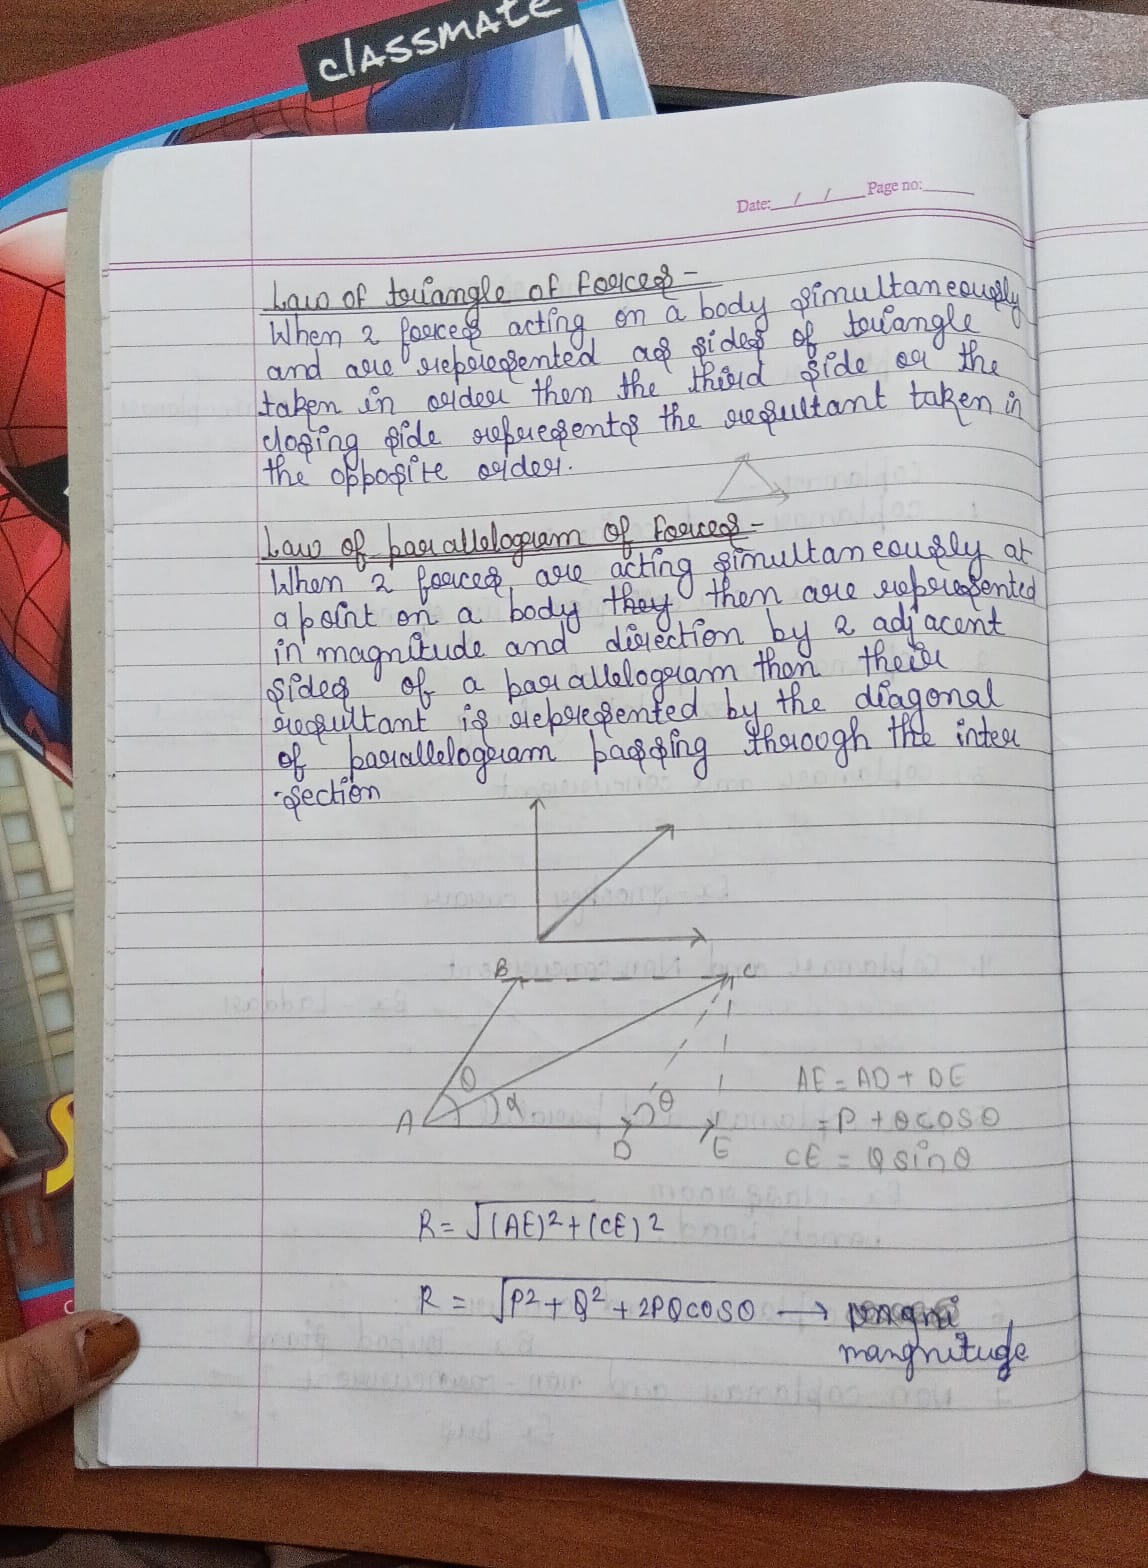 classmate
Date: / / Page no:
Law of triangle of Forces -
When 2 forces acting on a body simultaneously
and are represented as sides of triangle
taken in order then the third side or the
closing side represents the resultant taken in
the opposite order.
Law of parallelogram of Forces -
When 2 forces are acting simultaneously at
a point on a body they then are represented
in magnitude and direction by 2 adjacent
sides of a parallelogram then their
resultant is represented by the diagonal
of parallelogram passing through the inter
-section
B C
θ
A α θ
D E
AE = AD + DE
= P + Q cos θ
CE = Q sin θ
R = √(AE)² + (CE)²
R = √P² + Q² + 2PQ cos θ →
mangnitude